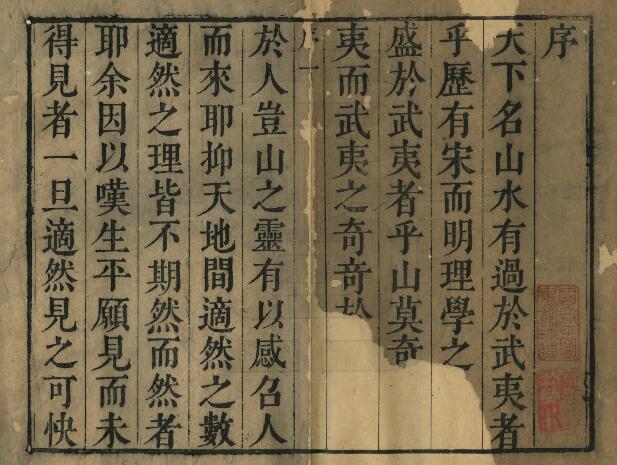 序
天下名山水有過於武夷者
乎歷有宋而明理學之
盛於武夷者乎山莫奇
夷而武夷之奇奇於
序一
於人豈山之靈有以感召人
而來耶抑天地間適然之數
適然之理皆不期然而然者
耶余因以嘆生平願見而未
得見者一旦適然見之可快